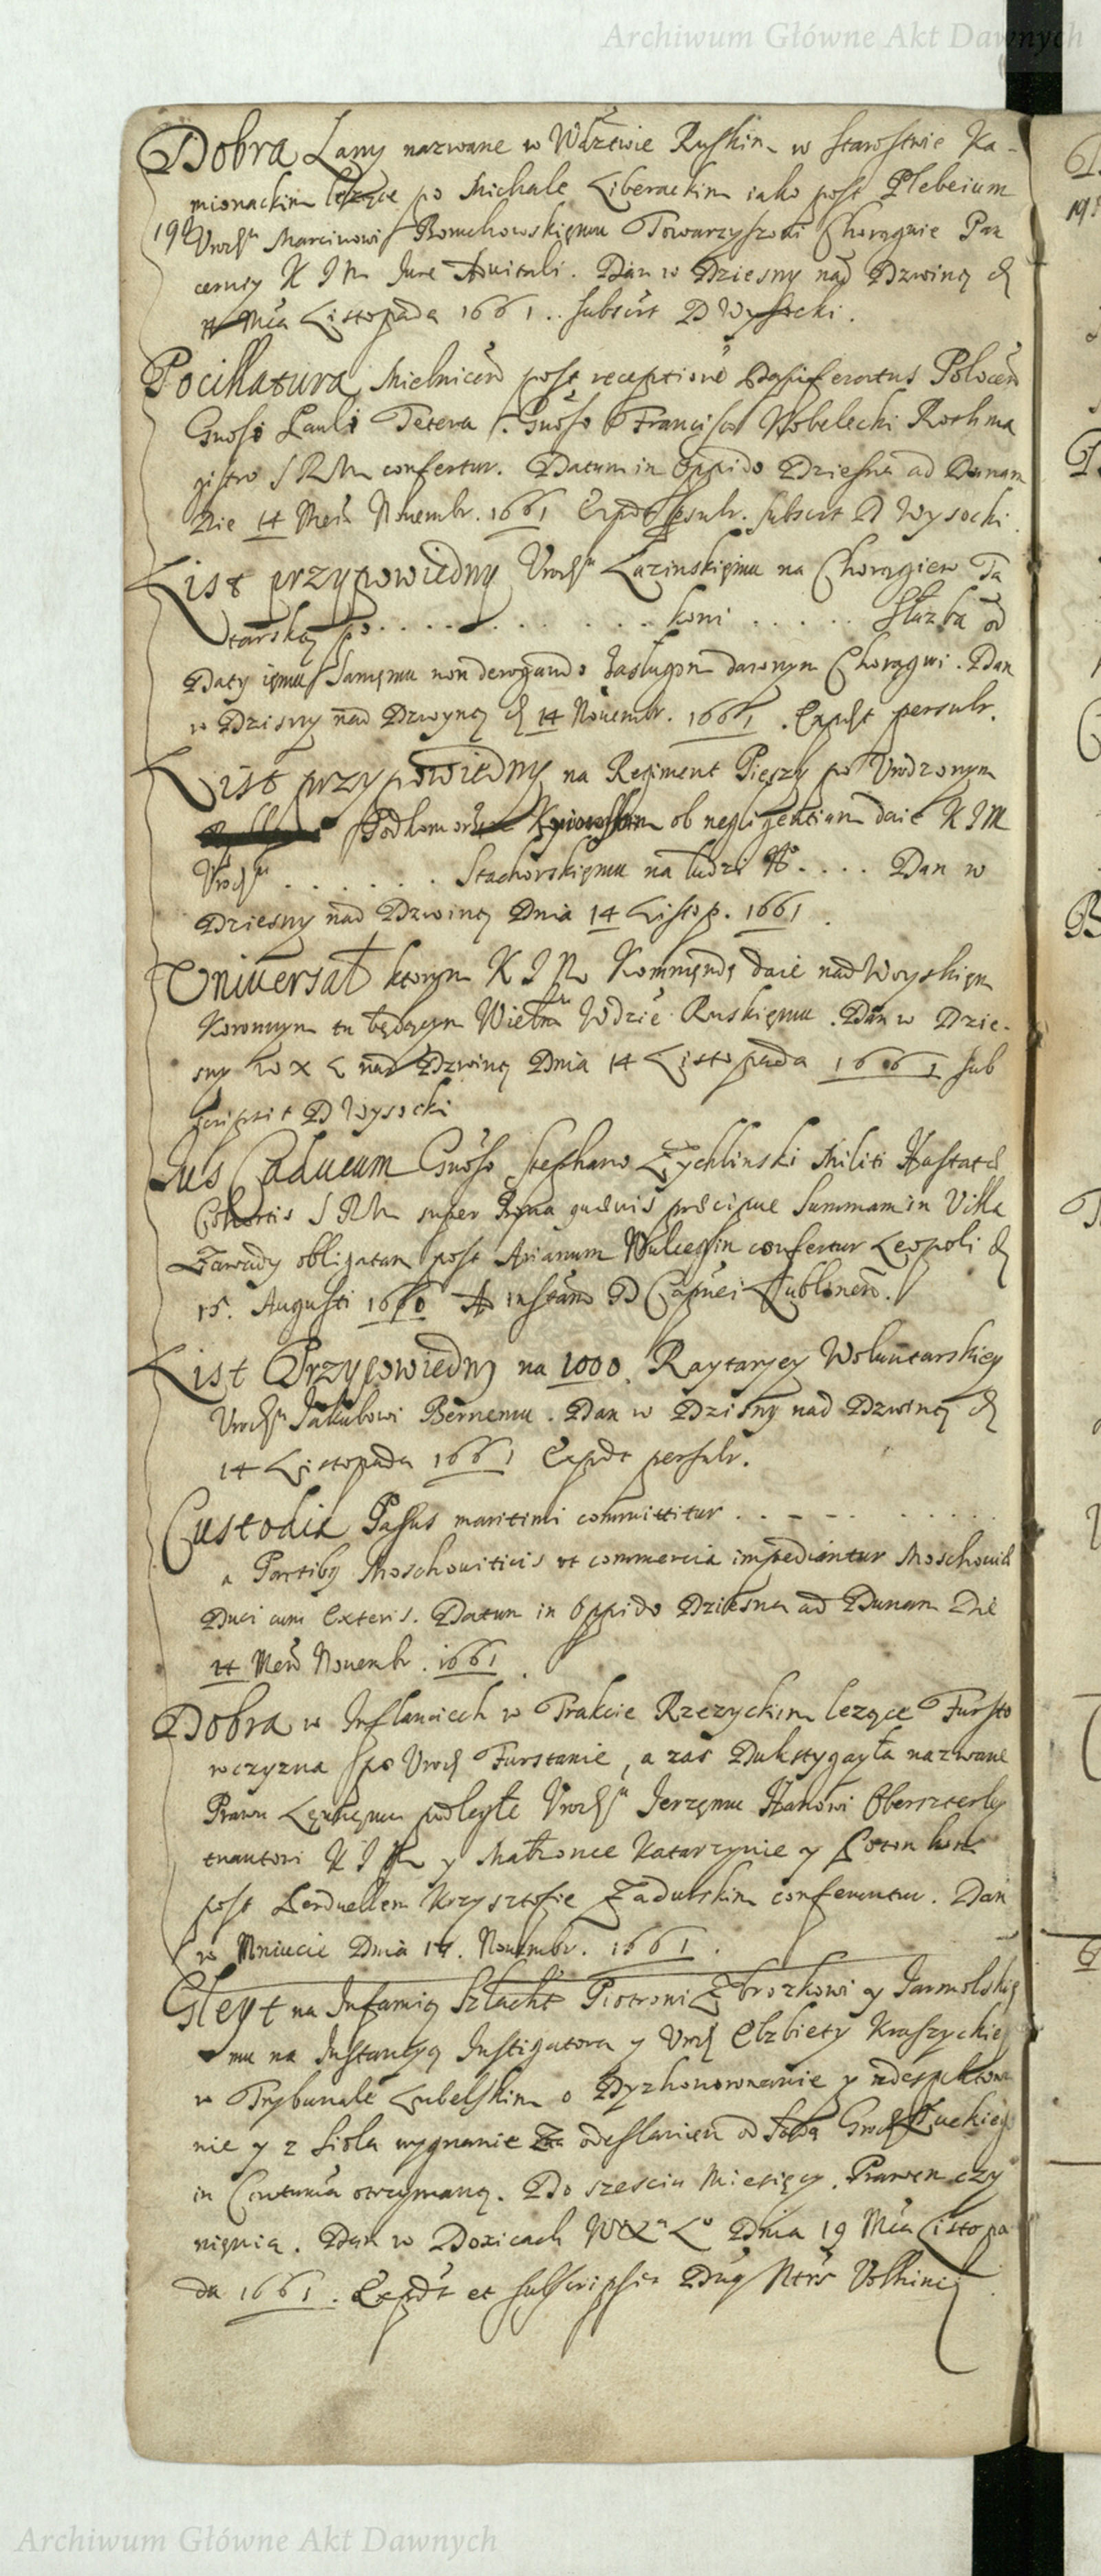 Archiwum Główne Akt Dawnych
Dobra Lany nazwane w Wdztwie Ruskim w Starostwie Ka-
mionackim lezące po Michale Liberackim iako post Plebeium
Urodzu Marcinowi Boruchowskięmu Towarzyszowi Chorągwie Pan
cerney K J M Jure Avitali. Dan w Dziesny nad Dzwiną d
14 Mca Listopada 1661. subscrt D Wysocki.
Pocillatura Mielnicen post receptione Dapiferatus Polocen
Gnosi Pauli Tetera Gnoso Francisco Wobelecki Rothma
gistro S R M confertur. Datum in Oppido Dziesna ad Dunam
Die 14 Mens Nouembr. 1661 Expdt persubr. subscrt D Wysocki
List przypowiedny Urodzu Lazinskięmu na Chorągiew Ta
tarską po . . . . . . . . . . . koni . . . . . Służba od
Daty ięmu samęmu non derogando zasługom dawnym Chorągwi. Dan
w Dzisny nad Dzwyną d 14 Nouembr. 1661. Expdt persubr.
List przypowiedny na Regiment Pieszy po Urodzonym
Podkomorzem Kyiowskim ob negligentiam daie K J M
Urodzu . . . . . . . Stachorskięmu na ludzi No. . . . Dan w
Dziesny nad Dzwiną Dnia 14 Listop. 1661.
Uniuersał ktorym K J M Kommęndę daie nad Woyskięm
Koronnym tu będącym Wielmu Wdzie Ruskięmu. Dan w Dzie-
sny W X L nad Dzwiną Dnia 14 Listopada 1661 sub
scripsit D Wysocki
Jus Caducum Gnoso Stephano Zychlinski Militi Hastatæ
Cohortis S R M super Bona quæuis præcipue Summam in Villa
Zawady obligatam post Arianum confertur Leopoli d
15. Augusti 1660 Ad instam D Capnei Lublinen.
List Przypowiedny na 1000. Raytaryey Woluntarskiey
Urodzu Jakubowi Bernemu. Dan w Dzisny nad Dzwiną d
14 Listopada 1661 Expdt persubr.
Custodia Passus maritimi committitur . . . . . . . . .
a Partibus Moschouiticis ut commercia impediantur Moschouiæ
Duci cum Exteris. Datum in Oppido Dziesna ad Dunam Die
14 Mens Nouembr. 1661.
Dobra w Inflanciech w Trakcie Rzezyckim lezące Fursto
wczyzna po Urodz Furstanie, a zas Dukstygayła nazwane
Prawu Lęnnęmu podległe Urodzu Jerzęmu Hanowi Oberszterley
tnantowi K J M y Małzonce Katarzynie y Potomkom
post Perduellem Krzysztofie Zadulskim conferuntur. Dan
w Mniucie Dnia 17. Nouembr. 1661.
Gleyt na Infamią Szlachć Piotrowi Zbrozkowi y Jarmolskię
mu na Instantyą Instigatora y Urodz Elzbiety Kraszyckiey
w Trybunale Lubelskim o Dyzhonorowanie y zdespektowa
nie y z Siola wygnanie za odesłaniem od Sądu Grodz Łuckieg
in Contuma otrzymaną. Do szesciu Miesięcy. Prawem czy
nięnia. Dan w Doxicach WXa Lo Dnia 19 Mca Listopa
da 1661. Expdt et subscripsit Dnus Ntrs Volhiniæ
Archiwum Główne Akt Dawnych